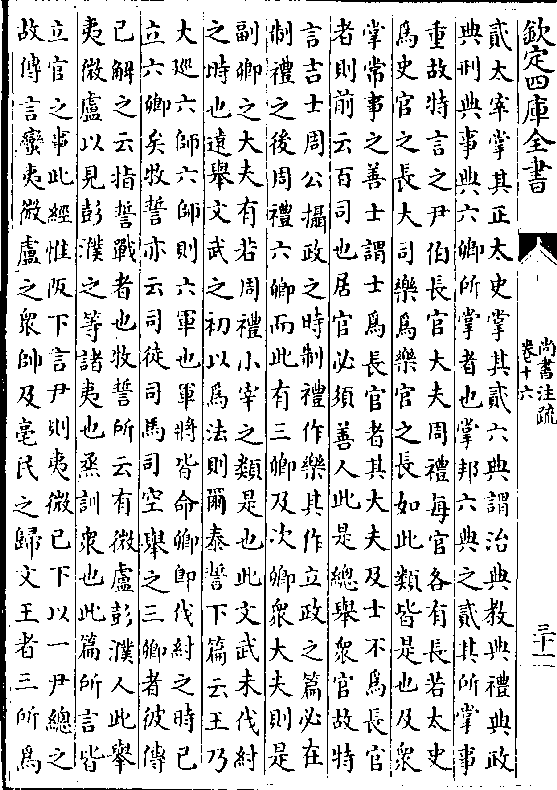 欽定四庫全書
尚書注疏
卷十六
三十一
貳太宰掌其正太史掌其貳六典謂治典教典禮典政
典刑典事典六卿所掌者也掌邦六典之貳其所掌事
重故特言之尹伯長官大夫周禮每官各有長若太史
為史官之長大司樂為樂官之長如此類皆是也及衆
掌常事之善士謂士為長官者其大夫及士不為長官
者則前云百司也居官必須善人此是總舉衆官故特
言吉士周公攝政之時制禮作樂其作立政之篇必在
制禮之後周禮六卿而此有三卿及次卿衆大夫則是
副卿之大夫有若周禮小宰之類是也此文武未伐紂
之時也遠舉文武之初以為法則爾泰誓下篇云王乃
大廵六師六師則六軍也軍將皆命卿卽伐紂之時已
立六卿矣牧誓亦云司徒司馬司空舉之三卿者彼傳
已解之云指誓戰者也牧誓所云有微盧彭濮人此舉
夷微盧以見彭濮之等諸夷也烝訓衆也此篇所言皆
立官之事此經惟阪下言尹則夷微已下以一尹總之
故傳言蠻夷微盧之衆帥及亳民之歸文王者三所為